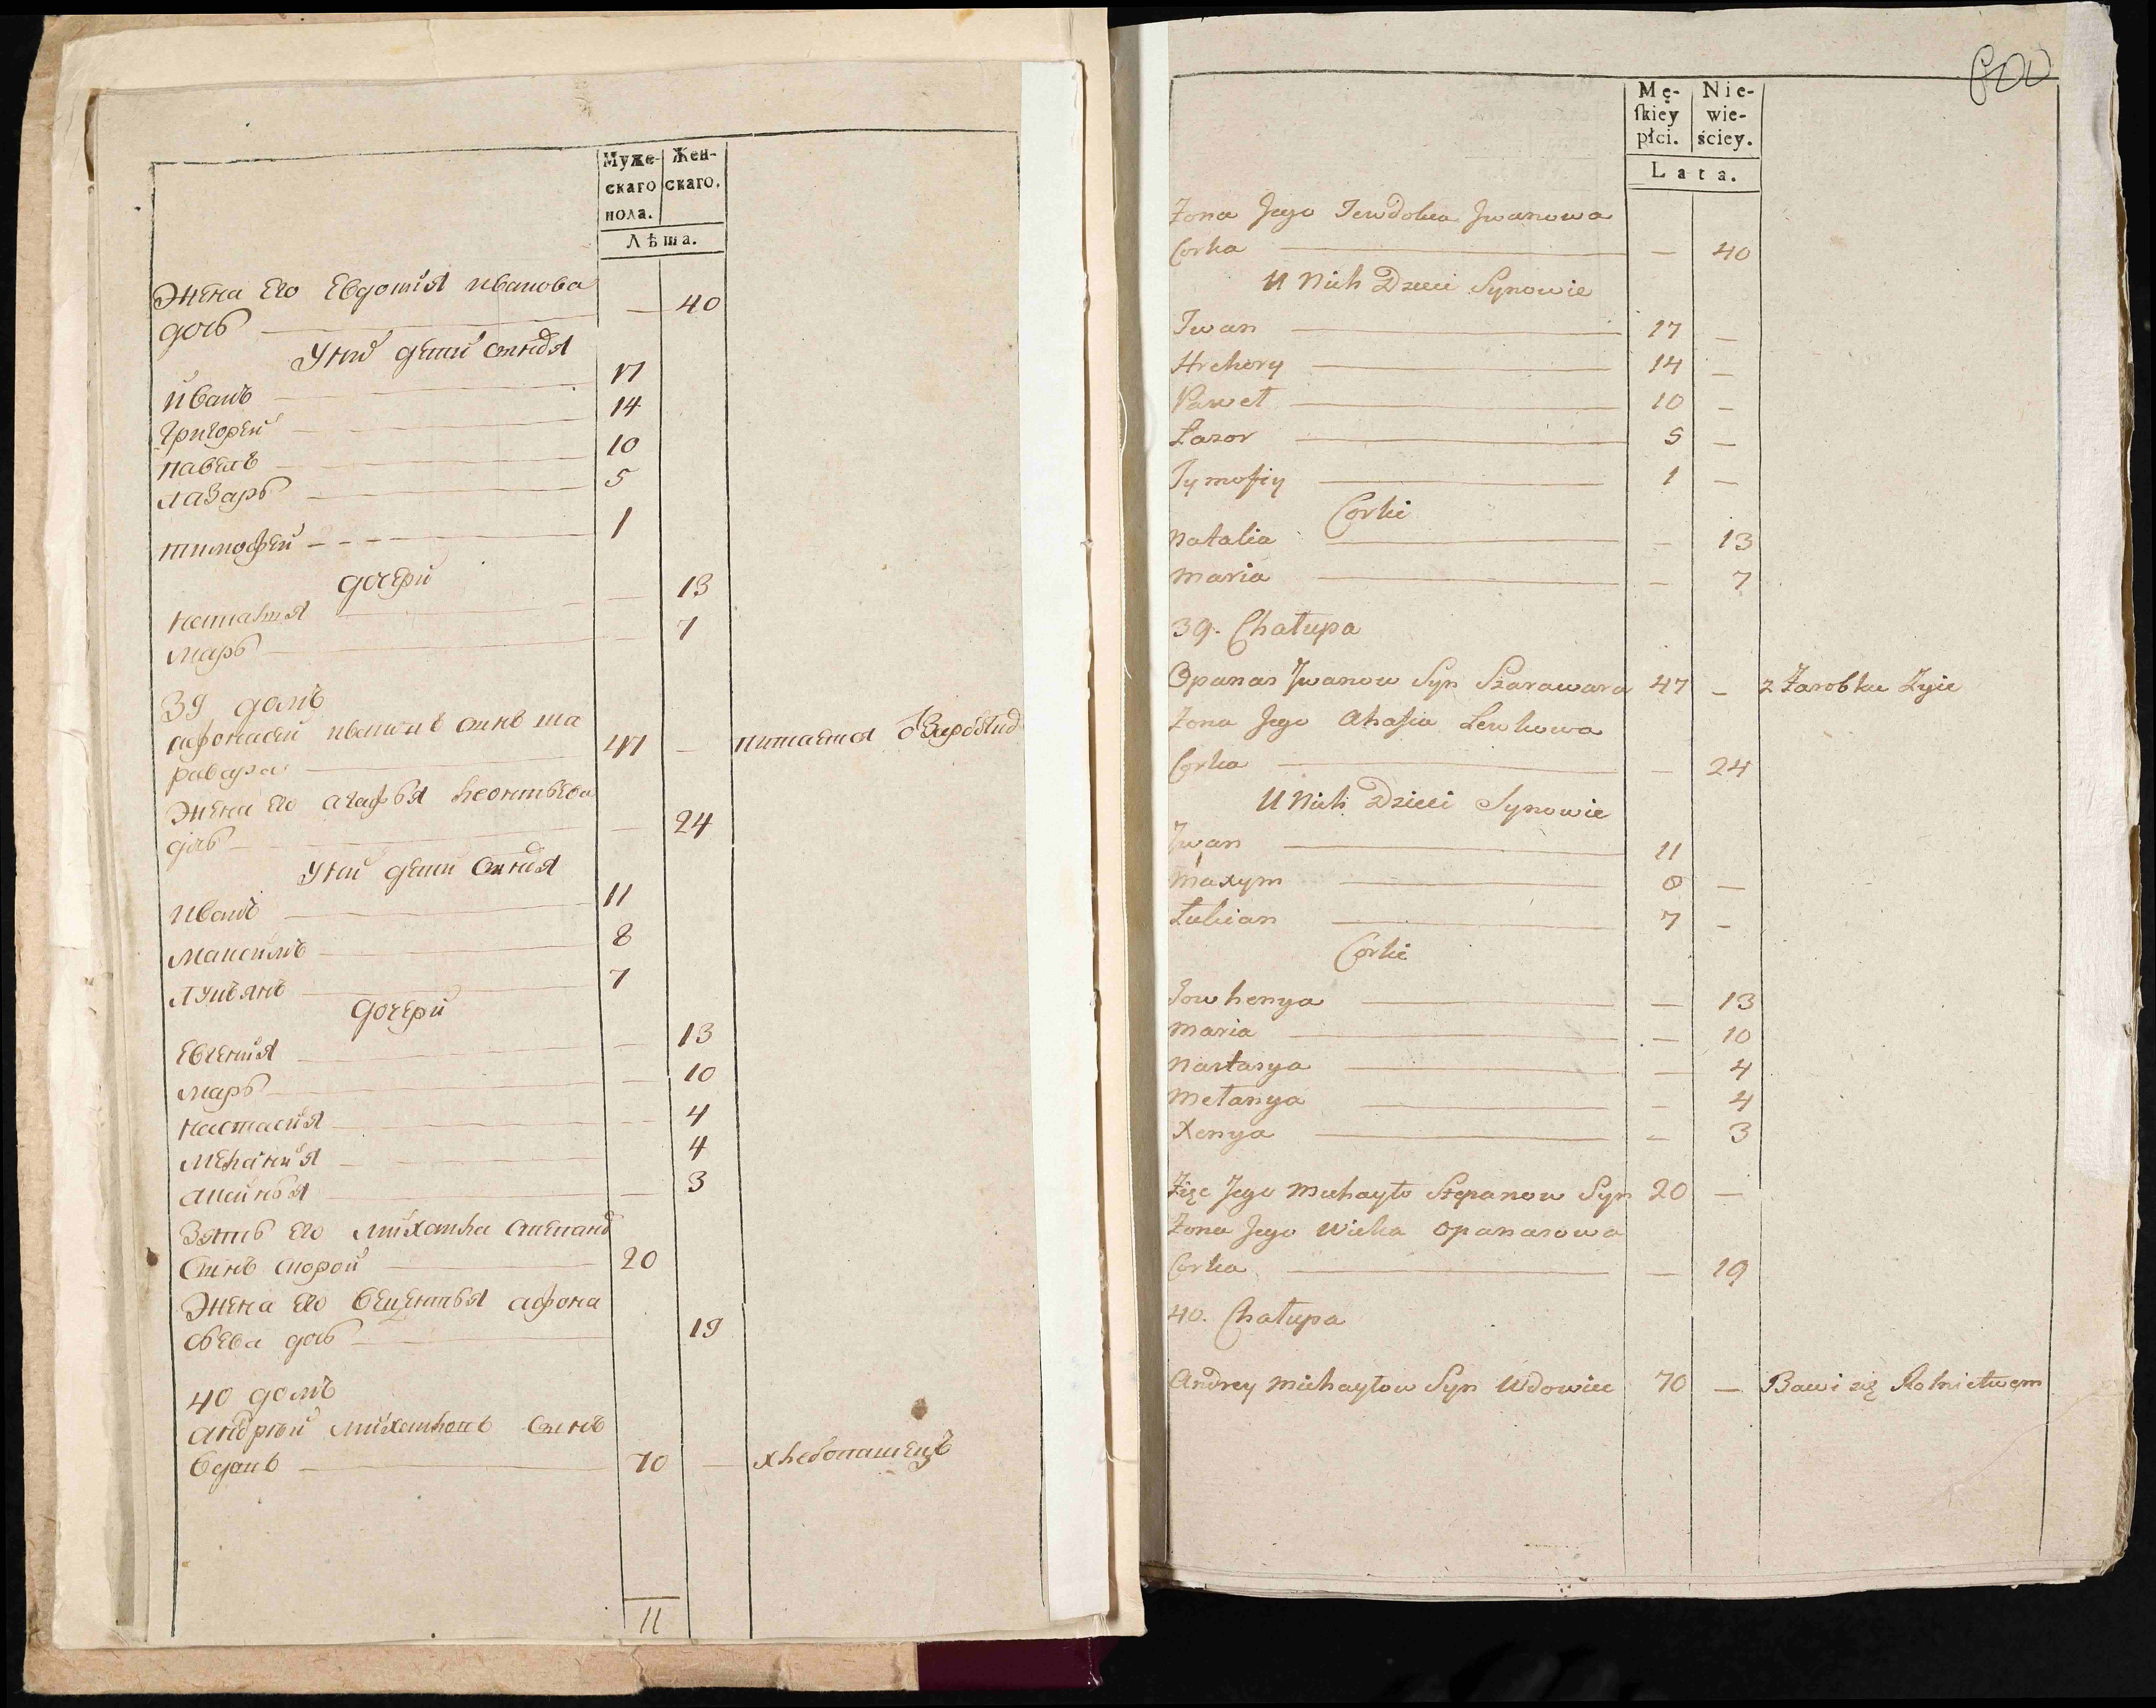 Муже-
скаго
пола.
Жен-
скаго.
Лѣта.
Жена Его Евдотія Иванова
дочь — — 40
У нихъ дети Синовя
Иванъ — 17
Григорей — 14
Павелъ — 10
Лазарь — 5
Тимофей — 1
дочери
Наталія — — 13
Марь — — 7
39 домъ
Афонасей Ивановъ Синъ Ша
равара — 47 — питается
Жена Его Агафья Леонтьева
дочь — — 24
У нихъ дети Синовя
Иванъ — 11
Максимъ — 8
Лукьянъ — 7
дочери
Евгенія — — 13
Марь — — 10
Настасия — — 4
Меланія — 4
Аксинья — — 3
Зять Его Михайла Степановъ
Синъ — 20
Жена Его Афона
сьева дочь — 19
40 домъ
Андрей Михайловъ Синъ
вдовъ — 70 — хлебопашецъ
11
600
Mę-
skiey
płci.
Nie-
wie-
ściey.
Lata.
Żona Jego Jewdokia Jwanowa
Corka — — 40
U Nich Dzieci Synowie
Jwan — 17 —
Hrehory — 14 —
Paweł — 10 —
Łazor — 5 —
Tymofiy — 1 —
Corki
Natalia — — 13
Maria — — 7
39. Chałupa
Opanas Jwanow Syn Szarawara 47 — z Zarobku Żyie
Żona Jego Ahafia Lewkowa
Corka — — 24
U Nich Dzieci Synowie
Jwan — 11
Maxym — 8 —
Łukian — 7 —
Corki
Jowhenya — — 13
Maria — — 10
Nastasya — — 4
Mełanya — — 4
Xenya — — 3
Zięć Jego Michayło Stepanow Syn 20 —
Żona Jego Wicka Opanasowa
Corka — — 19
40. Chałupa
Andrey Michayłow Syn Wdowiec 70 — Bawi się Rolnictwem